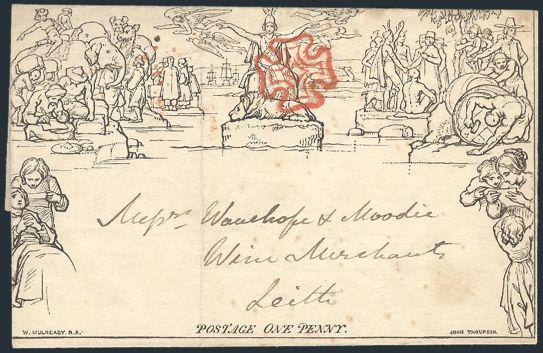 Messrs Wauchope & Moodie
Wine Merchants
Leith
POSTAGE ONE PENNY.
W. MULREADY. R.A.
JOHN THOMPSON.